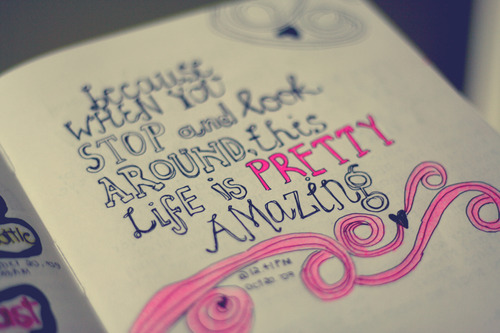 because
WHEN YOU
STOP and look
AROUND, this
Life is PRETTY
AMAzing
@12:41PM
Oct 20 '09